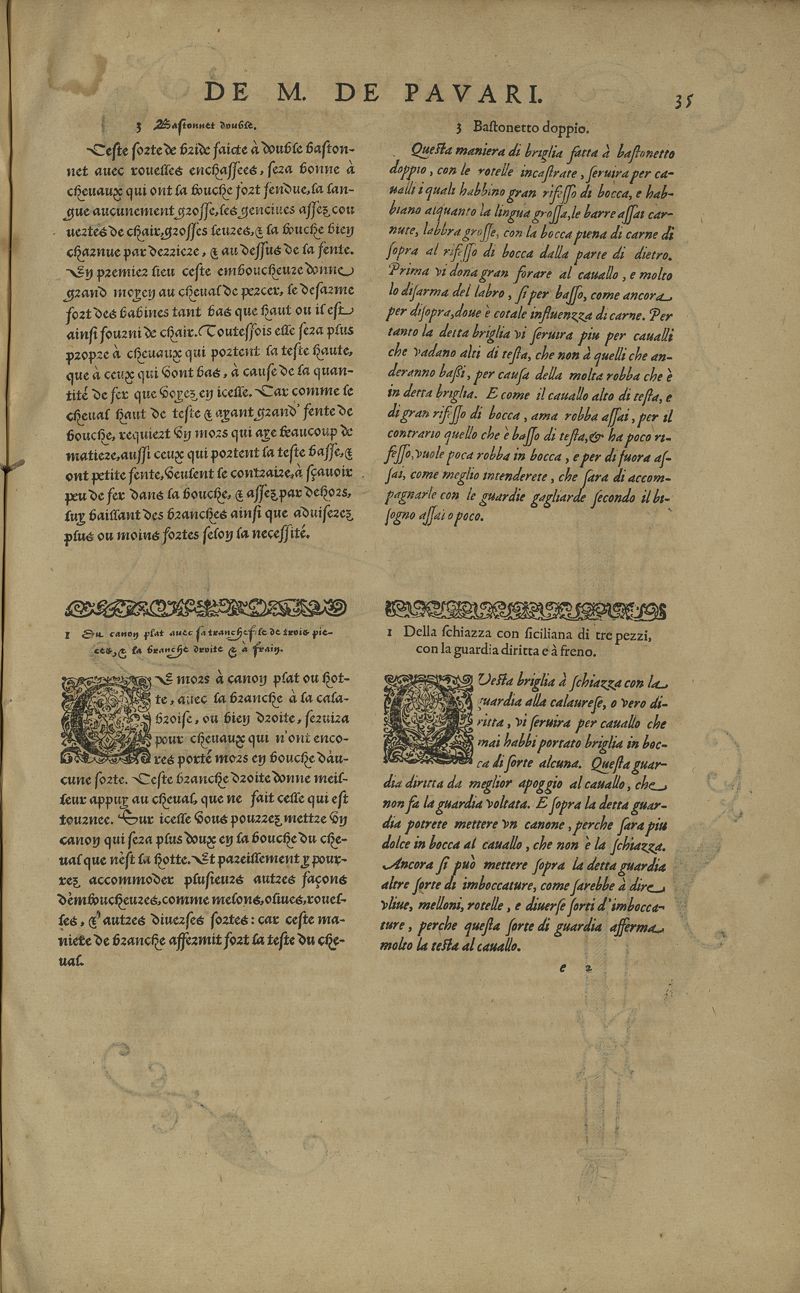 DE M. DE PAVARI.
35
3 Bastonnet double.
Ceste sorte de bride faicte à double baston-
net auec rouelles enchassees, sera bonne à
cheuaux qui ont la bouche fort fendue, la lan-
gue aucunement grosse, les genciues assez cou
uertes de chair, grosses leures, & la bouche bien
charnue par derriere, & au dessus de la fente.
En premier lieu ceste emboucheure donne
grand moyen au cheual de percer, se desarme
fort des babines tant bas que haut ou il est
ainsi fourni de chair. Toutesfois elle sera plus
propre à cheuaux qui portent la teste haute,
que à ceux qui vont bas, à cause de la quan-
tité de fer que voyez en icelle. Car comme le
cheual haut de teste & ayant grand' fente de
bouche, requiert vn mors qui aye beaucoup de
matiere, aussi ceux qui portent la teste basse, &
ont petite fente, veulent le contraire, à sçauoir
peu de fer dans la bouche, & assez par dehors,
luy baillant des branches ainsi que aduiserez
plus ou moins fortes selon la necessité.
1 Du canon plat auec sa tranchefile de trois pie-
ces, & la branche droite & à frain.
LE mors à canon plat ou hot-
te, auec la branche à la cala-
broise, ou bien droite, seruira
pour cheuaux qui n'ont enco-
res porté mors en bouche d'au-
cune sorte. Ceste branche droite donne meil-
leur appuy au cheual, que ne fait celle qui est
tournee. Sur icelle vous pourrez mettre vn
canon qui sera plus doux en la bouche du che-
ual que n'est la hotte. Et pareillement y pour-
rez accommoder plusieurs autres façons
d'emboucheures, comme melons, oliues, rouel-
les, & autres diuerses sortes: car ceste ma-
niere de branche affermit fort la teste du che-
ual.
3 Bastonetto doppio.
Questa maniera di briglia fatta à bastonetto
doppio, con le rotelle incastrate, seruira per ca-
ualli i quali habbino gran rifesso di bocca, e hab-
biano alquanto la lingua grossa, le barre assai car-
nute, labbra grosse, con la bocca piena di carne di
sopra al rifesso di bocca dalla parte di dietro.
Prima vi dona gran forare al cauallo, e molto
lo disarma del labro, si per basso, come ancora
per disopra, doue è cotale influenzza di carne. Per
tanto la detta briglia vi seruira piu per caualli
che vadano alti di testa, che non à quelli che an-
deranno bassi, per causa della molta robba che è
in detta briglia. E come il cauallo alto di testa, e
di gran rifesso di bocca, ama robba assai, per il
contrario quello che è basso di testa, & ha poco ri-
fesso, vuole poca robba in bocca, e per di fuora as-
sai, come meglio intenderete, che sara di accom-
pagnarle con le guardie gagliarde secondo il bi-
sogno assai o poco.
1 Della schiazza con siciliana di tre pezzi,
con la guardia diritta e à freno.
QVesta briglia à schiazza con la
guardia alla calaurese, o vero di-
ritta, vi seruira per cauallo che
mai habbi portato briglia in boc-
ca di sorte alcuna. Questa guar-
dia diritta da meglior apoggio al cauallo, che
non fa la guardia voltata. E sopra la detta guar-
dia potrete mettere vn canone, perche sara piu
dolce in bocca al cauallo, che non è la schiazza.
Ancora si può mettere sopra la detta guardia
altre sorte di imboccature, come sarebbe à dire
vliue, melloni, rotelle, e diuerse sorti d'imbocca-
ture, perche questa sorte di guardia afferma
molto la testa al cauallo.
e 2